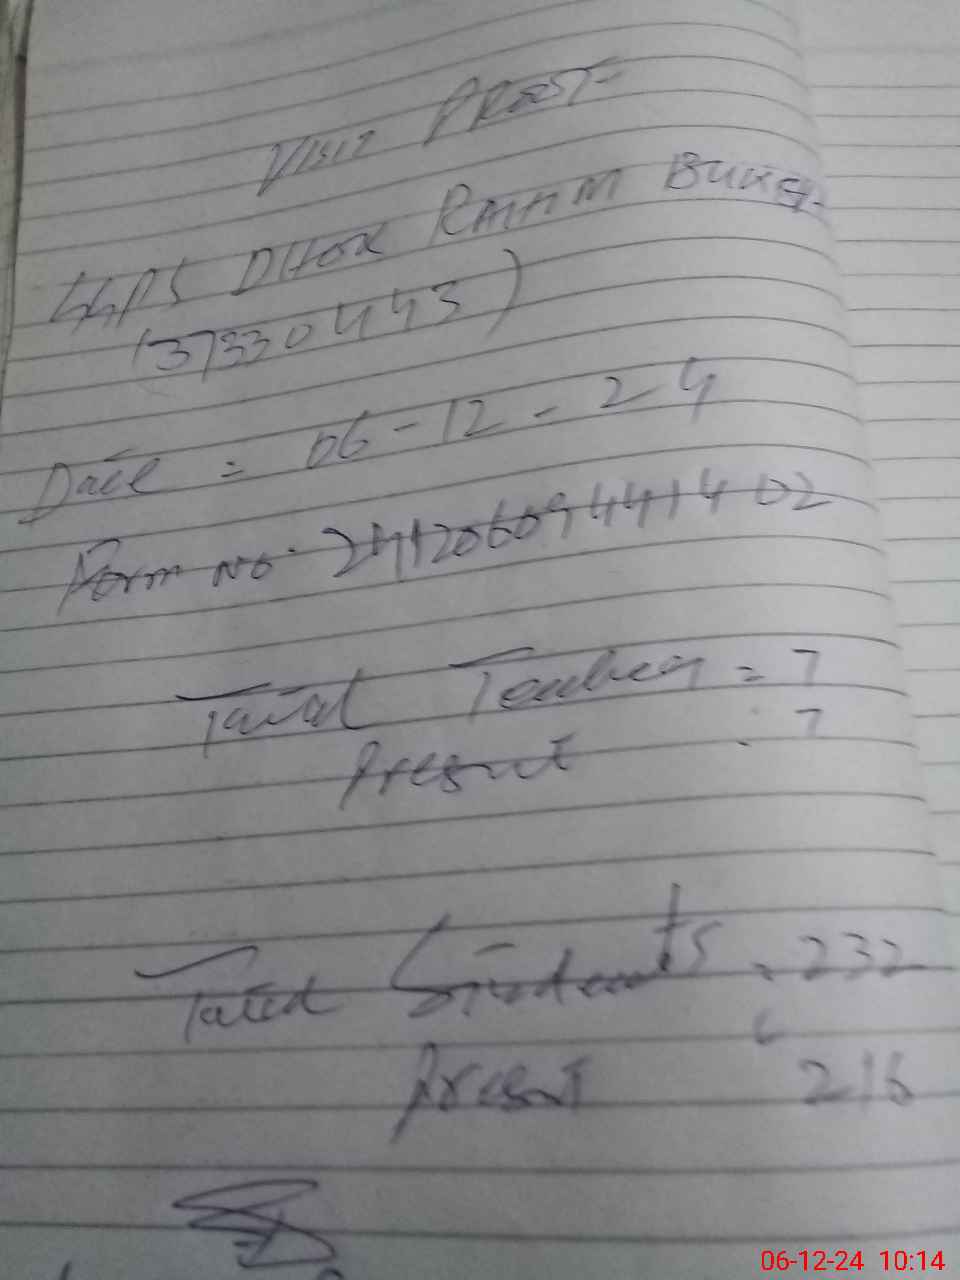 Visit Proof
GGPS DHOK Rahim Buksh
(37330443)
Date = 06-12-24
Form no. 241206094441402
Total Teachers = 7
Present : 7
Total Students : 232
Present 216
06-12-24 10:14